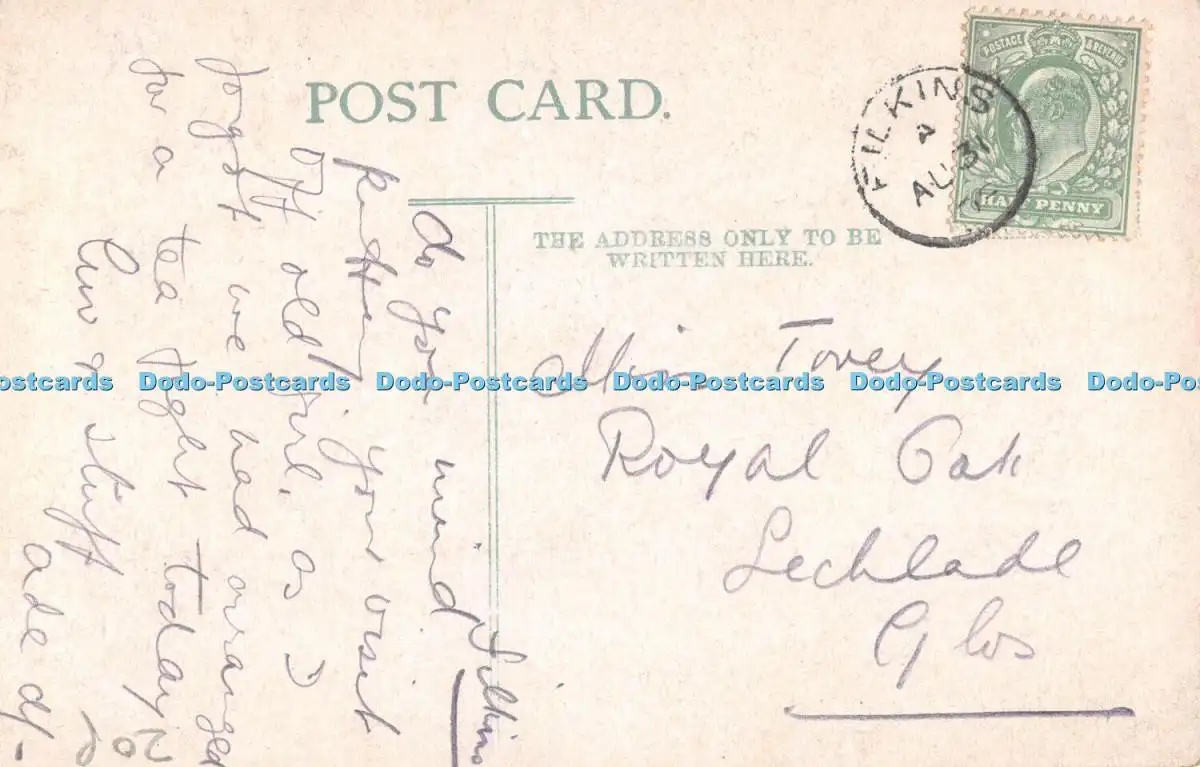 POST CARD.
POSTAGE & REVENUE
HALF PENNY
FILKINS
A
AU 31
THE ADDRESS ONLY TO BE
WRITTEN HERE.
Miss Tovey
Royal Oak
Lechlade
Glos
Filkins
do you mind
putting your visit
off old girl. as I
forgot we had arranged
for a tea fight today
luv & stuff
Dodo-Postcards Dodo-Postcards Dodo-Postcards Dodo-Postcards Dodo-Postcards Dodo-Postcards